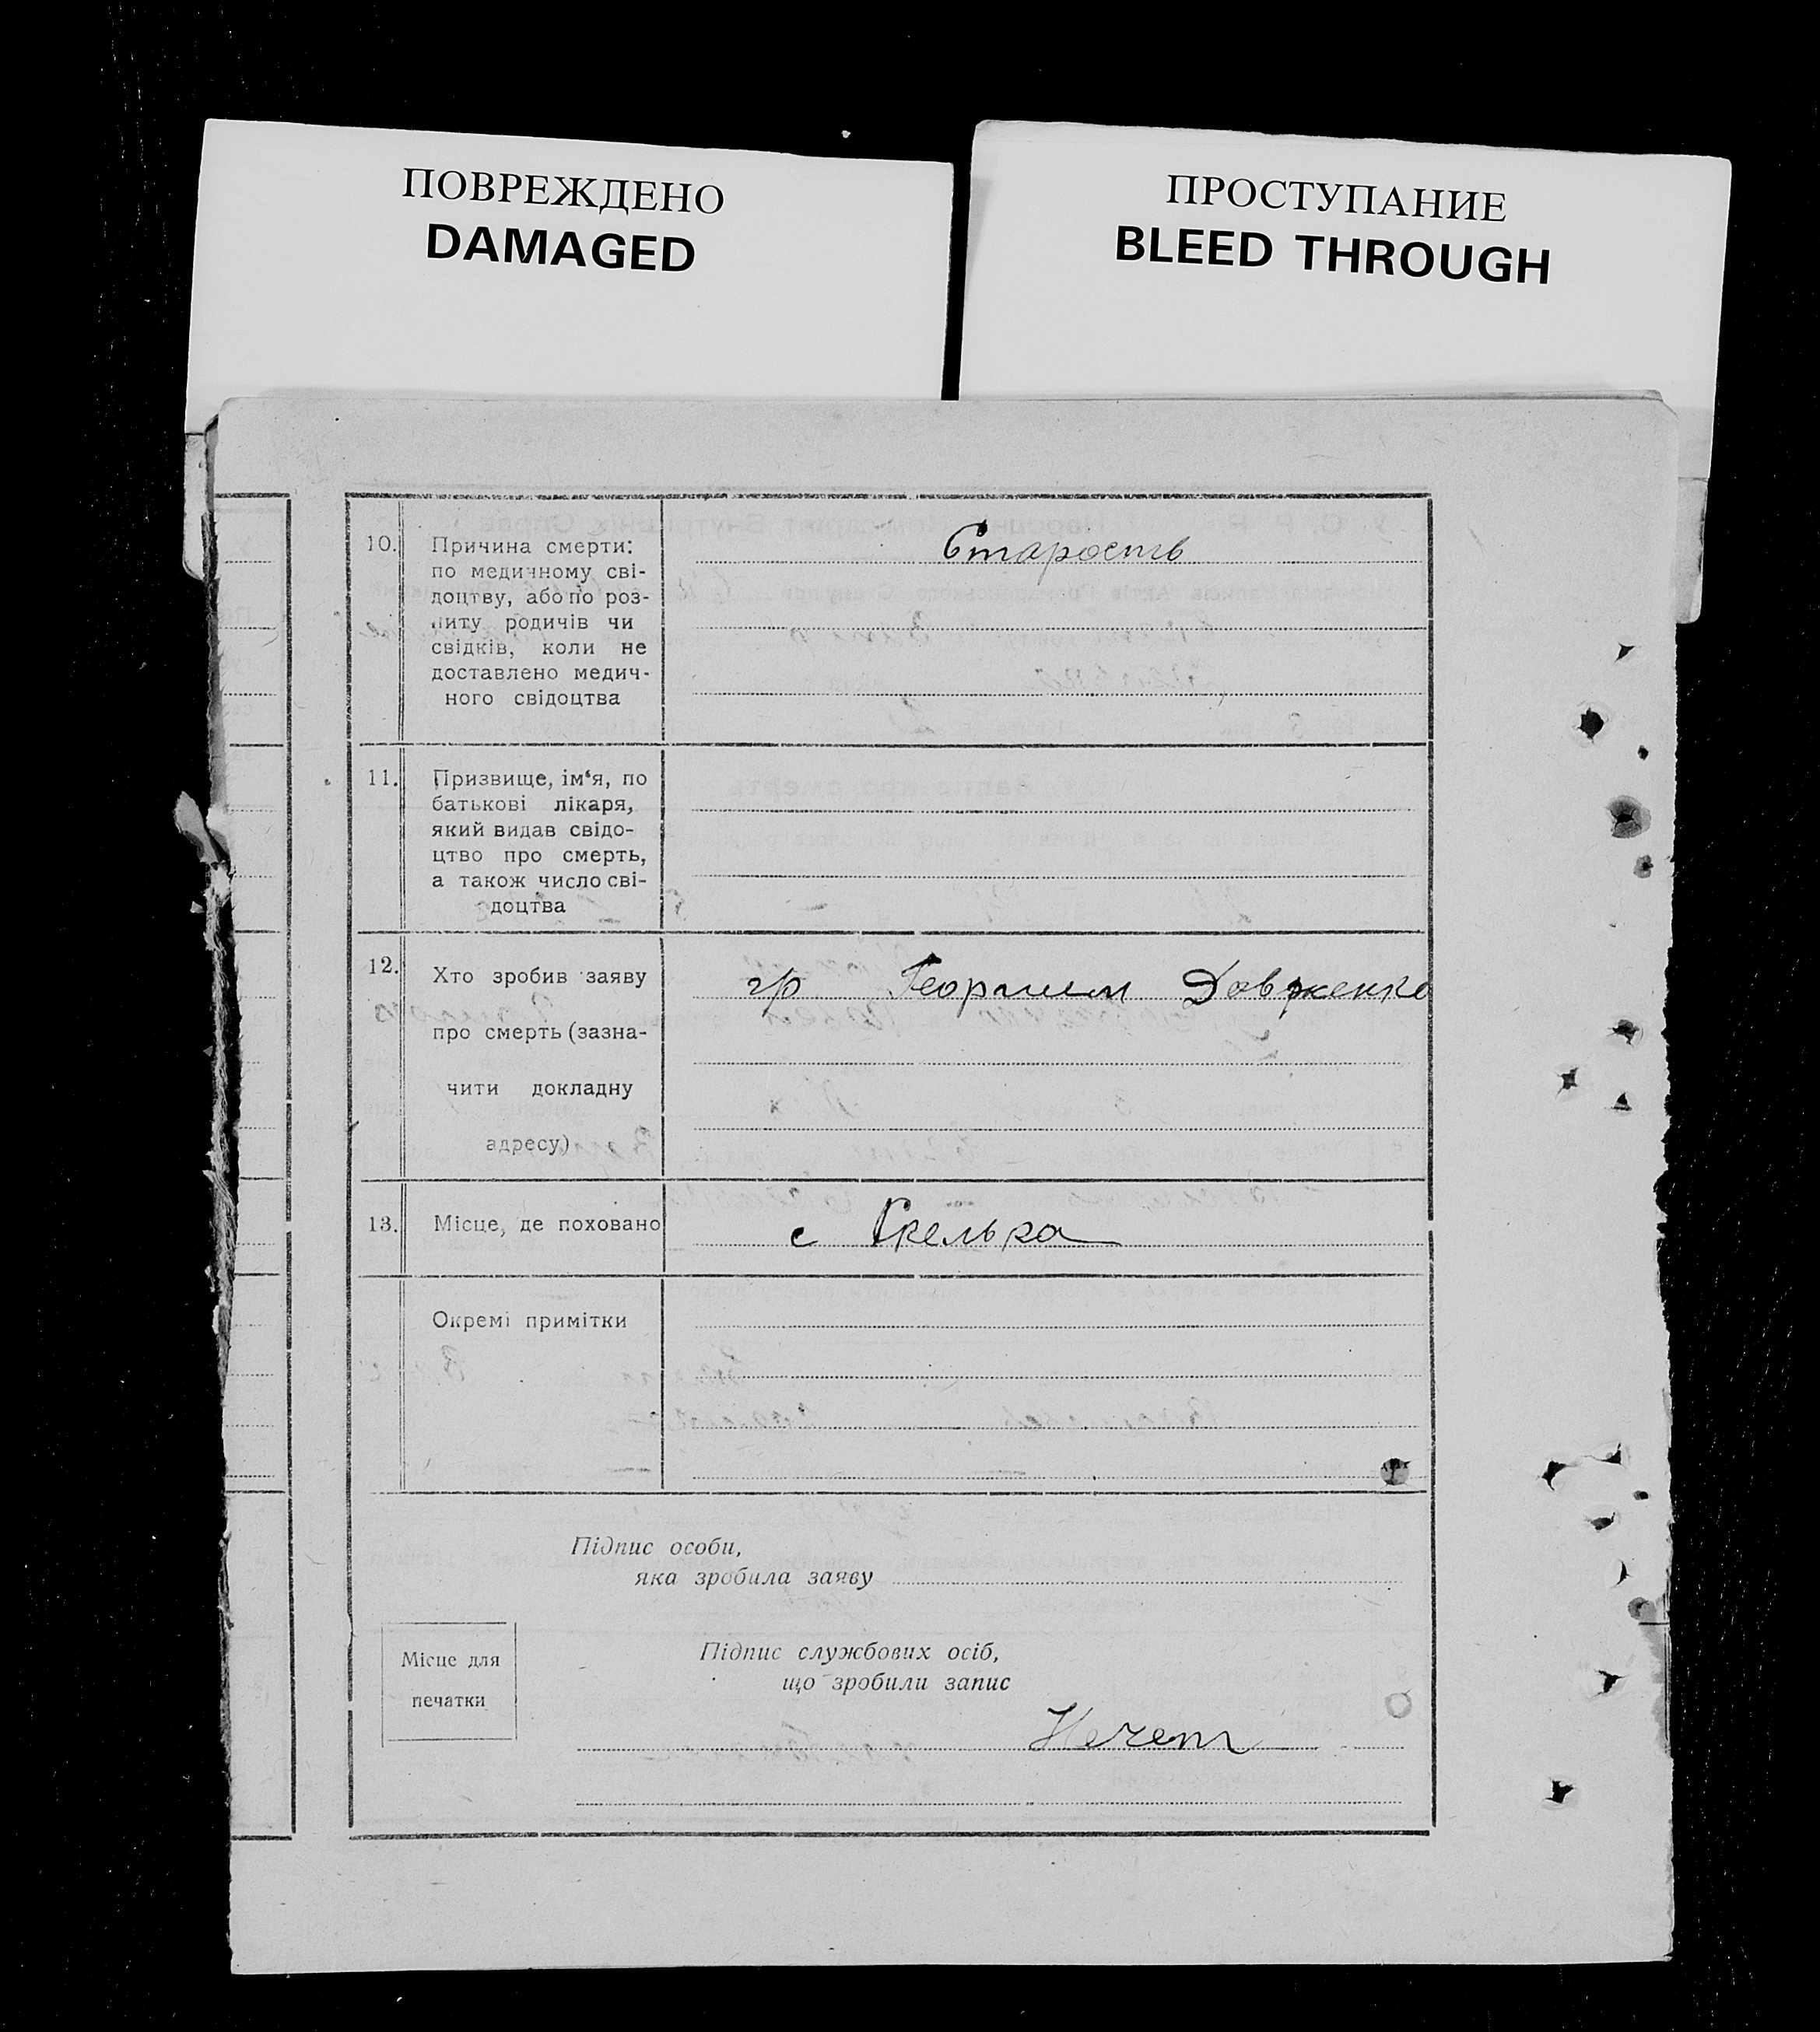 ПОВРЕЖДЕНО
DAMAGED
ПРОСТУПАНИЕ
BLEED THROUGH
10. Причина смерти: Старость
по медичному сві-
доцтву, або по роз-
питу родичів чи
свідків, коли не
доставлено медич-
ного свідоцтва
11. Призвище, ім‘я, по
батькові лікаря,
який видав свідо-
цтво про смерть,
а також число сві-
доцтва
12. Хто зробив заяву гр Довженко
про смерть (зазна-
чити докладну
адресу)
13. Місце, де поховано с Скелька
Окремі примітки
Підпис особи,
яка зробила заяву
Підпис службових осіб,
що зробили запис
Місце для
печатки